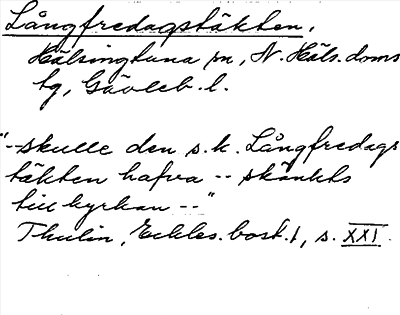 Långfredagstäkten.
Hälsingtuna sn, N. Häls. doms
tg, Gävleb. l.
"-skulle den s.k. Långfredags
täkten hafva -- skänkts
till kyrkan --"
Thulin, Eckles. bost. 1, s. XXI.